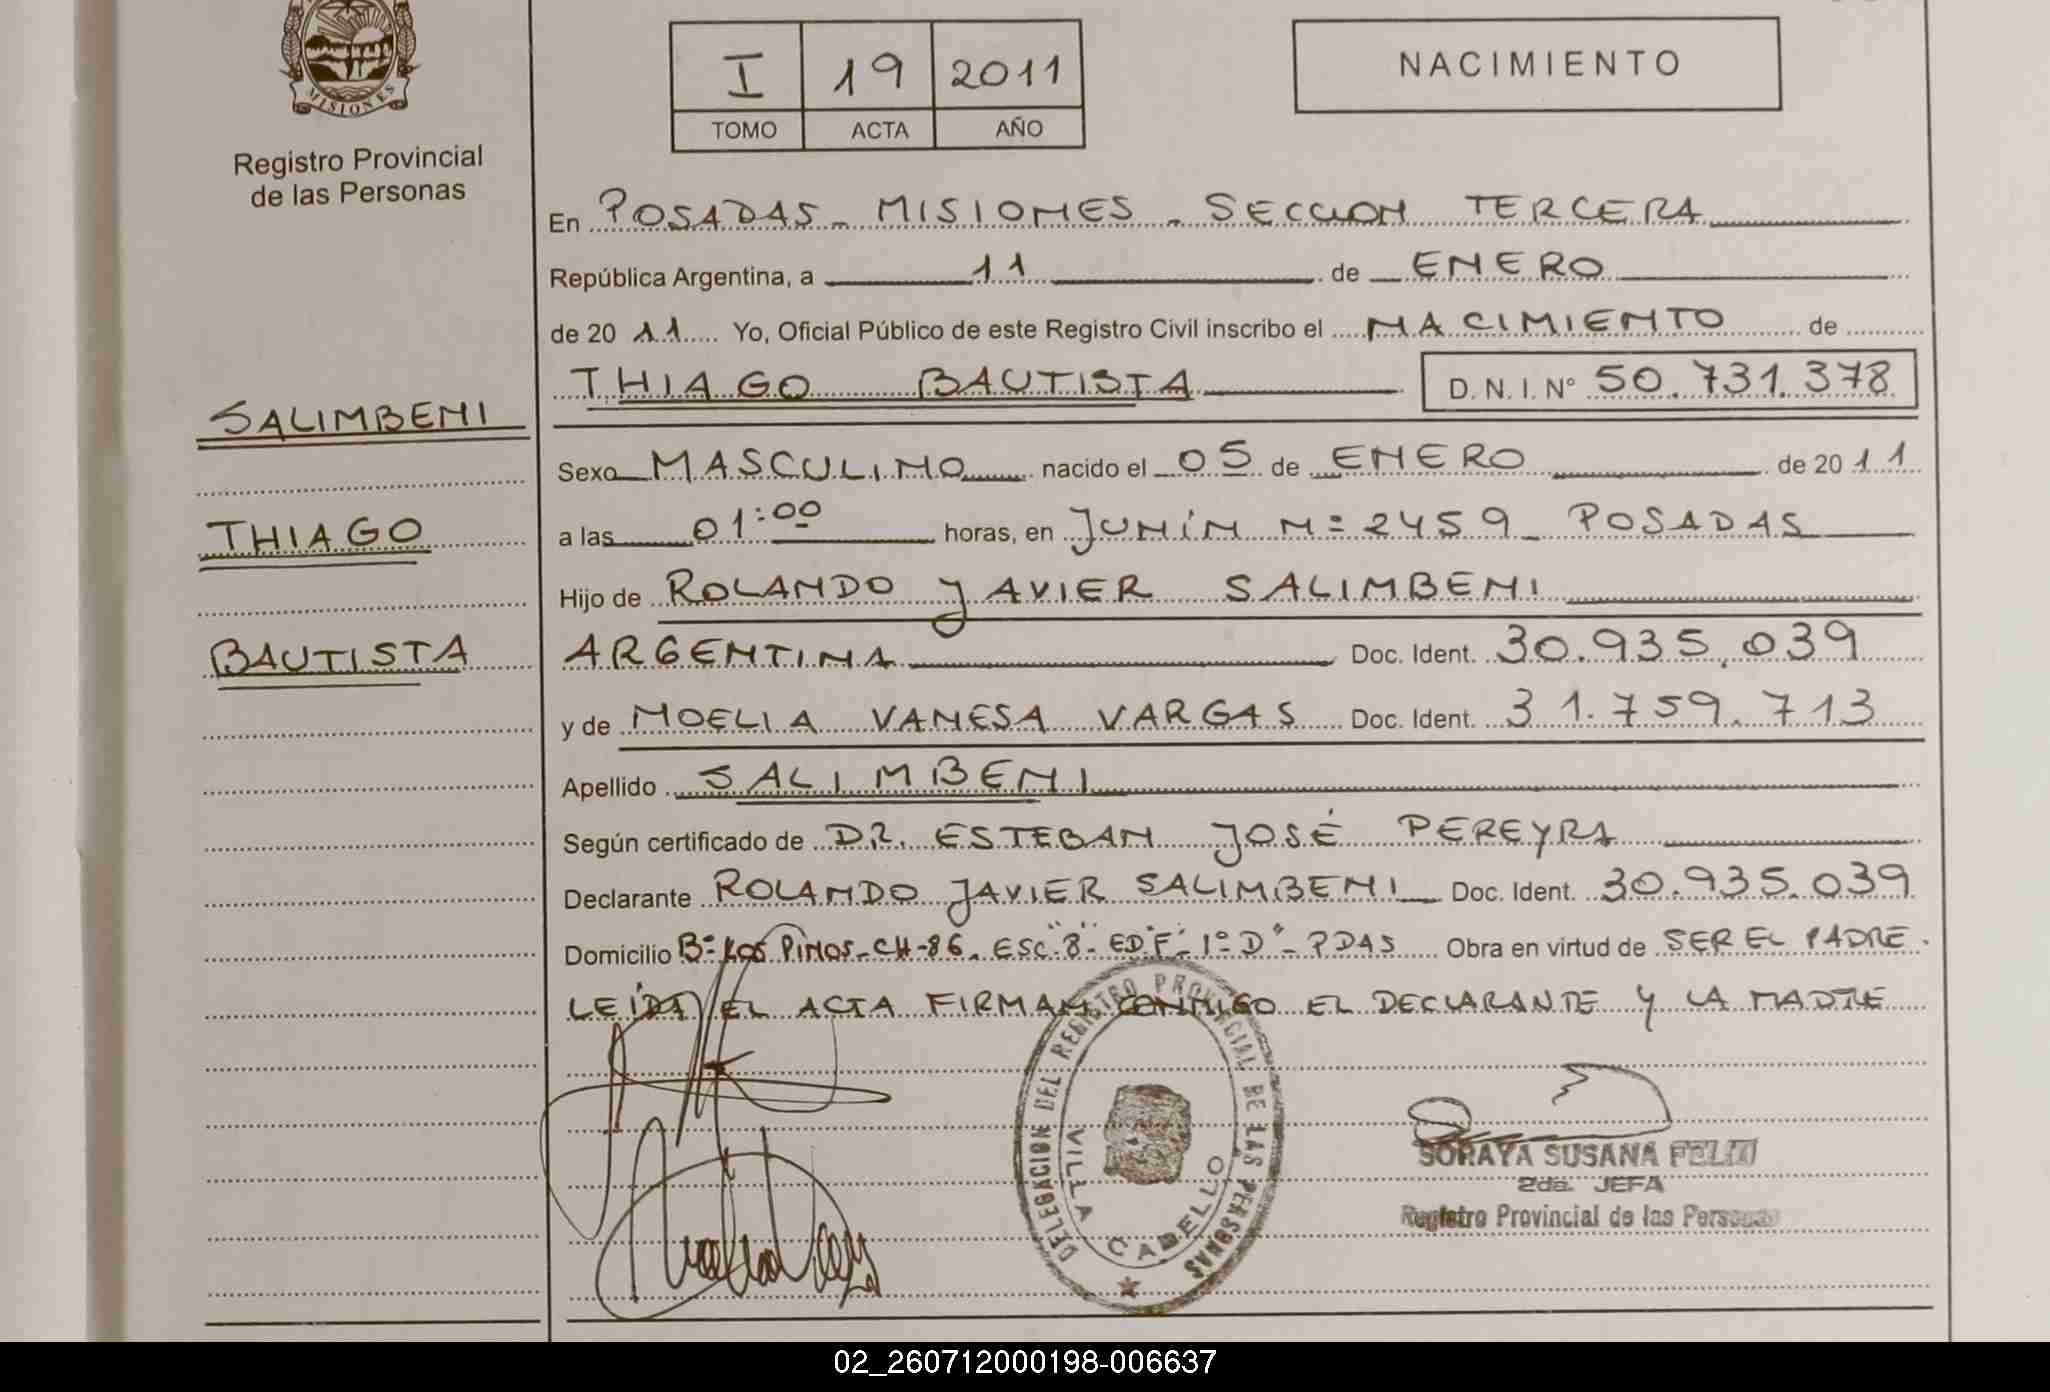 MISIONES
Registro Provincial
de las Personas
I 19 2011
TOMO ACTA AÑO
NACIMIENTO
En POSADAS - MISIONES - SECCION TERCERA
República Argentina, a 11 de ENERO
de 20 11 Yo, Oficial Público de este Registro Civil inscribo el NACIMIENTO de
THIAGO BAUTISTA D. N. I. N° 50.731.378
SALIMBENI
Sexo MASCULINO nacido el 05 de ENERO de 20 11
THIAGO
a las 01:00 horas, en JUNÍN Nº 2459 - POSADAS
Hijo de ROLANDO JAVIER SALIMBENI
BAUTISTA
ARGENTINA Doc. Ident. 30.935.039
y de NOELIA VANESA VARGAS Doc. Ident. 31.759.713
Apellido SALIMBENI
Según certificado de DR. ESTEBAN JOSÉ PEREYRA
Declarante ROLANDO JAVIER SALIMBENI Doc. Ident. 30.935.039
Domicilio Bº LOS PINOS - CH-86. ESC."8"- ED"F"- 1º D"- PDAS Obra en virtud de SER EL PADRE.
LEÍDA EL ACTA FIRMAN CONMIGO EL DECLARANTE Y LA MADRE
DELEGACION DEL REGISTRO PROVINCIAL DE LAS PERSONAS
VILLA CABELLO
SORAYA SUSANA
2da. JEFA
Registro Provincial de las Personas
02_260712000198-006637